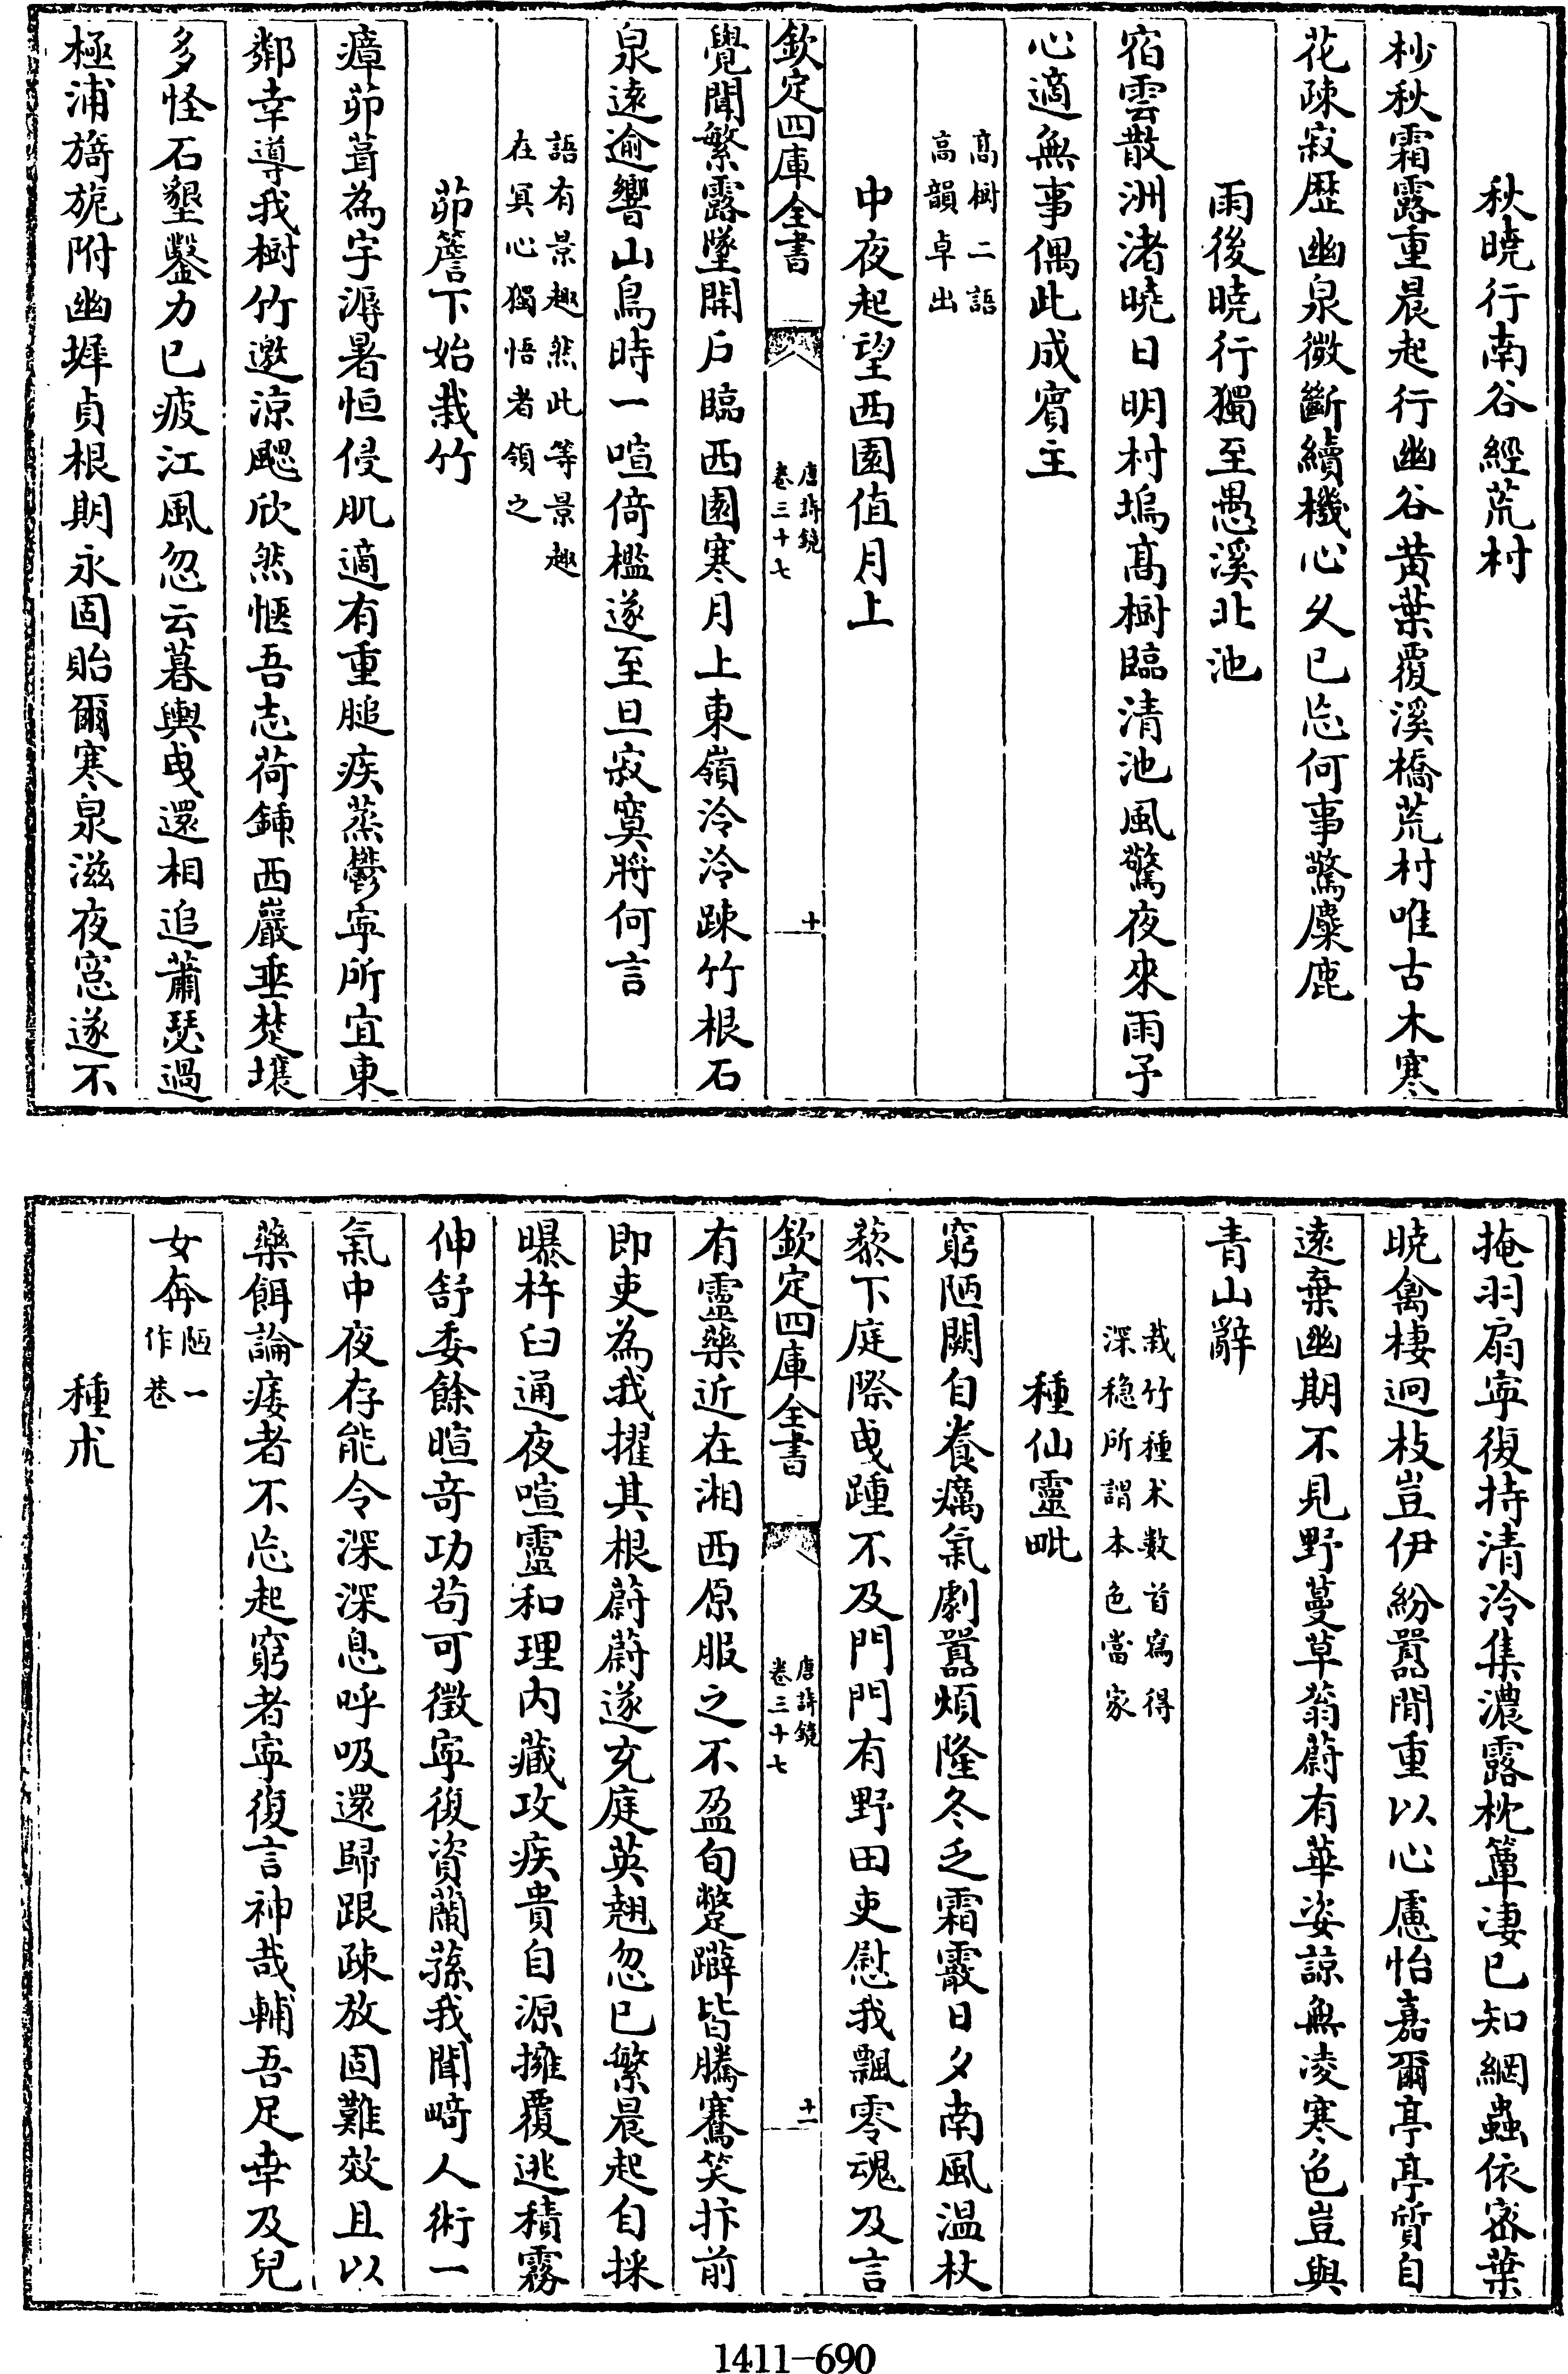 秋曉行南谷經荒村
杪秋霜露重晨起行幽谷黄葉覆溪橋荒村唯古木寒
花疎寂歴幽泉微斷續機心久已忘何事驚麋鹿
雨後曉行獨至愚溪北池
宿雲散洲渚曉日明村塢髙樹臨清池風驚夜來雨予
心適無事偶此成賓主
髙樹二語
高韻卓出
中夜起望西園值月上
欽定四庫全書
唐詩鏡
卷三十七
十
覺聞繁露墜開戶臨西園寒月上東嶺泠泠踈竹根石
泉遠逾響山鳥時一喧倚楹遂至旦寂寞將何言
語有景趣然此等景趣
在冥心獨悟者領之
茆簷下始栽竹
瘴茆葺為宇溽暑恒侵肌適有重膇疾蒸鬱寧所宜東
鄰幸導我樹竹邀涼颸欣然愜吾志荷鍤西巖垂楚壤
多怪石墾鑿力已疲江風忽云暮輿曵還相追蕭瑟過
極浦旖旎附幽墀貞根期永固貽爾寒泉滋夜窓遂不
掩羽扇寧復持清泠集濃露枕簟凄已知網蟲依宻葉
曉禽棲迥枝豈伊紛囂間重以心慮怡嘉爾亭亭質自
遠棄幽期不見野蔓草蓊蔚有華姿諒無凌寒色豈與
青山辭
栽竹種术數首寫得
深穩所謂本色當家
種仙靈毗
窮陋闕自養癘氣劇囂煩隆冬乏霜霰日夕南風温杖
藜下庭際曵踵不及門門有野田吏慰我飄零魂及言
欽定四庫全書
唐詩鏡
卷三十七
十一
有靈藥近在湘西原服之不盈旬蹩躃皆騰騫笑抃前
即吏為我擢其根蔚蔚遂充庭英翹忽已繁晨起自採
曝杵臼通夜喧靈和理内藏攻疾貴自源擁覆逃積霧
伸舒委餘暄竒功苟可徵寧復資蘭蓀我聞畸人術一
氣中夜存能令深深息呼吸還歸跟疎放固難效且以
藥餌論痿者不忘起窮者寧復言神哉輔吾足幸及兒
女奔
陋一
作巷
種术
1411-690